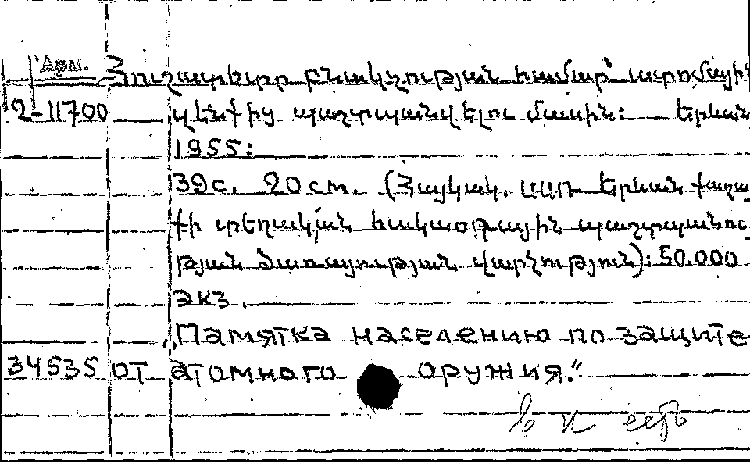 Арм. Հուշատետր բնակչության համար՝ ատոմային
2-11700 զենքից պաշտպանվելու մասին: Երևան
1955:
39с. 20см. (Հայկակ. ՍՍՌ Երևան քաղա
քի տեղական հակաօդային պաշտպանու
թյան ծառայության վարչություն): 50.000
экз.
„Памятка населению по защите
34535 от атомного оружия."